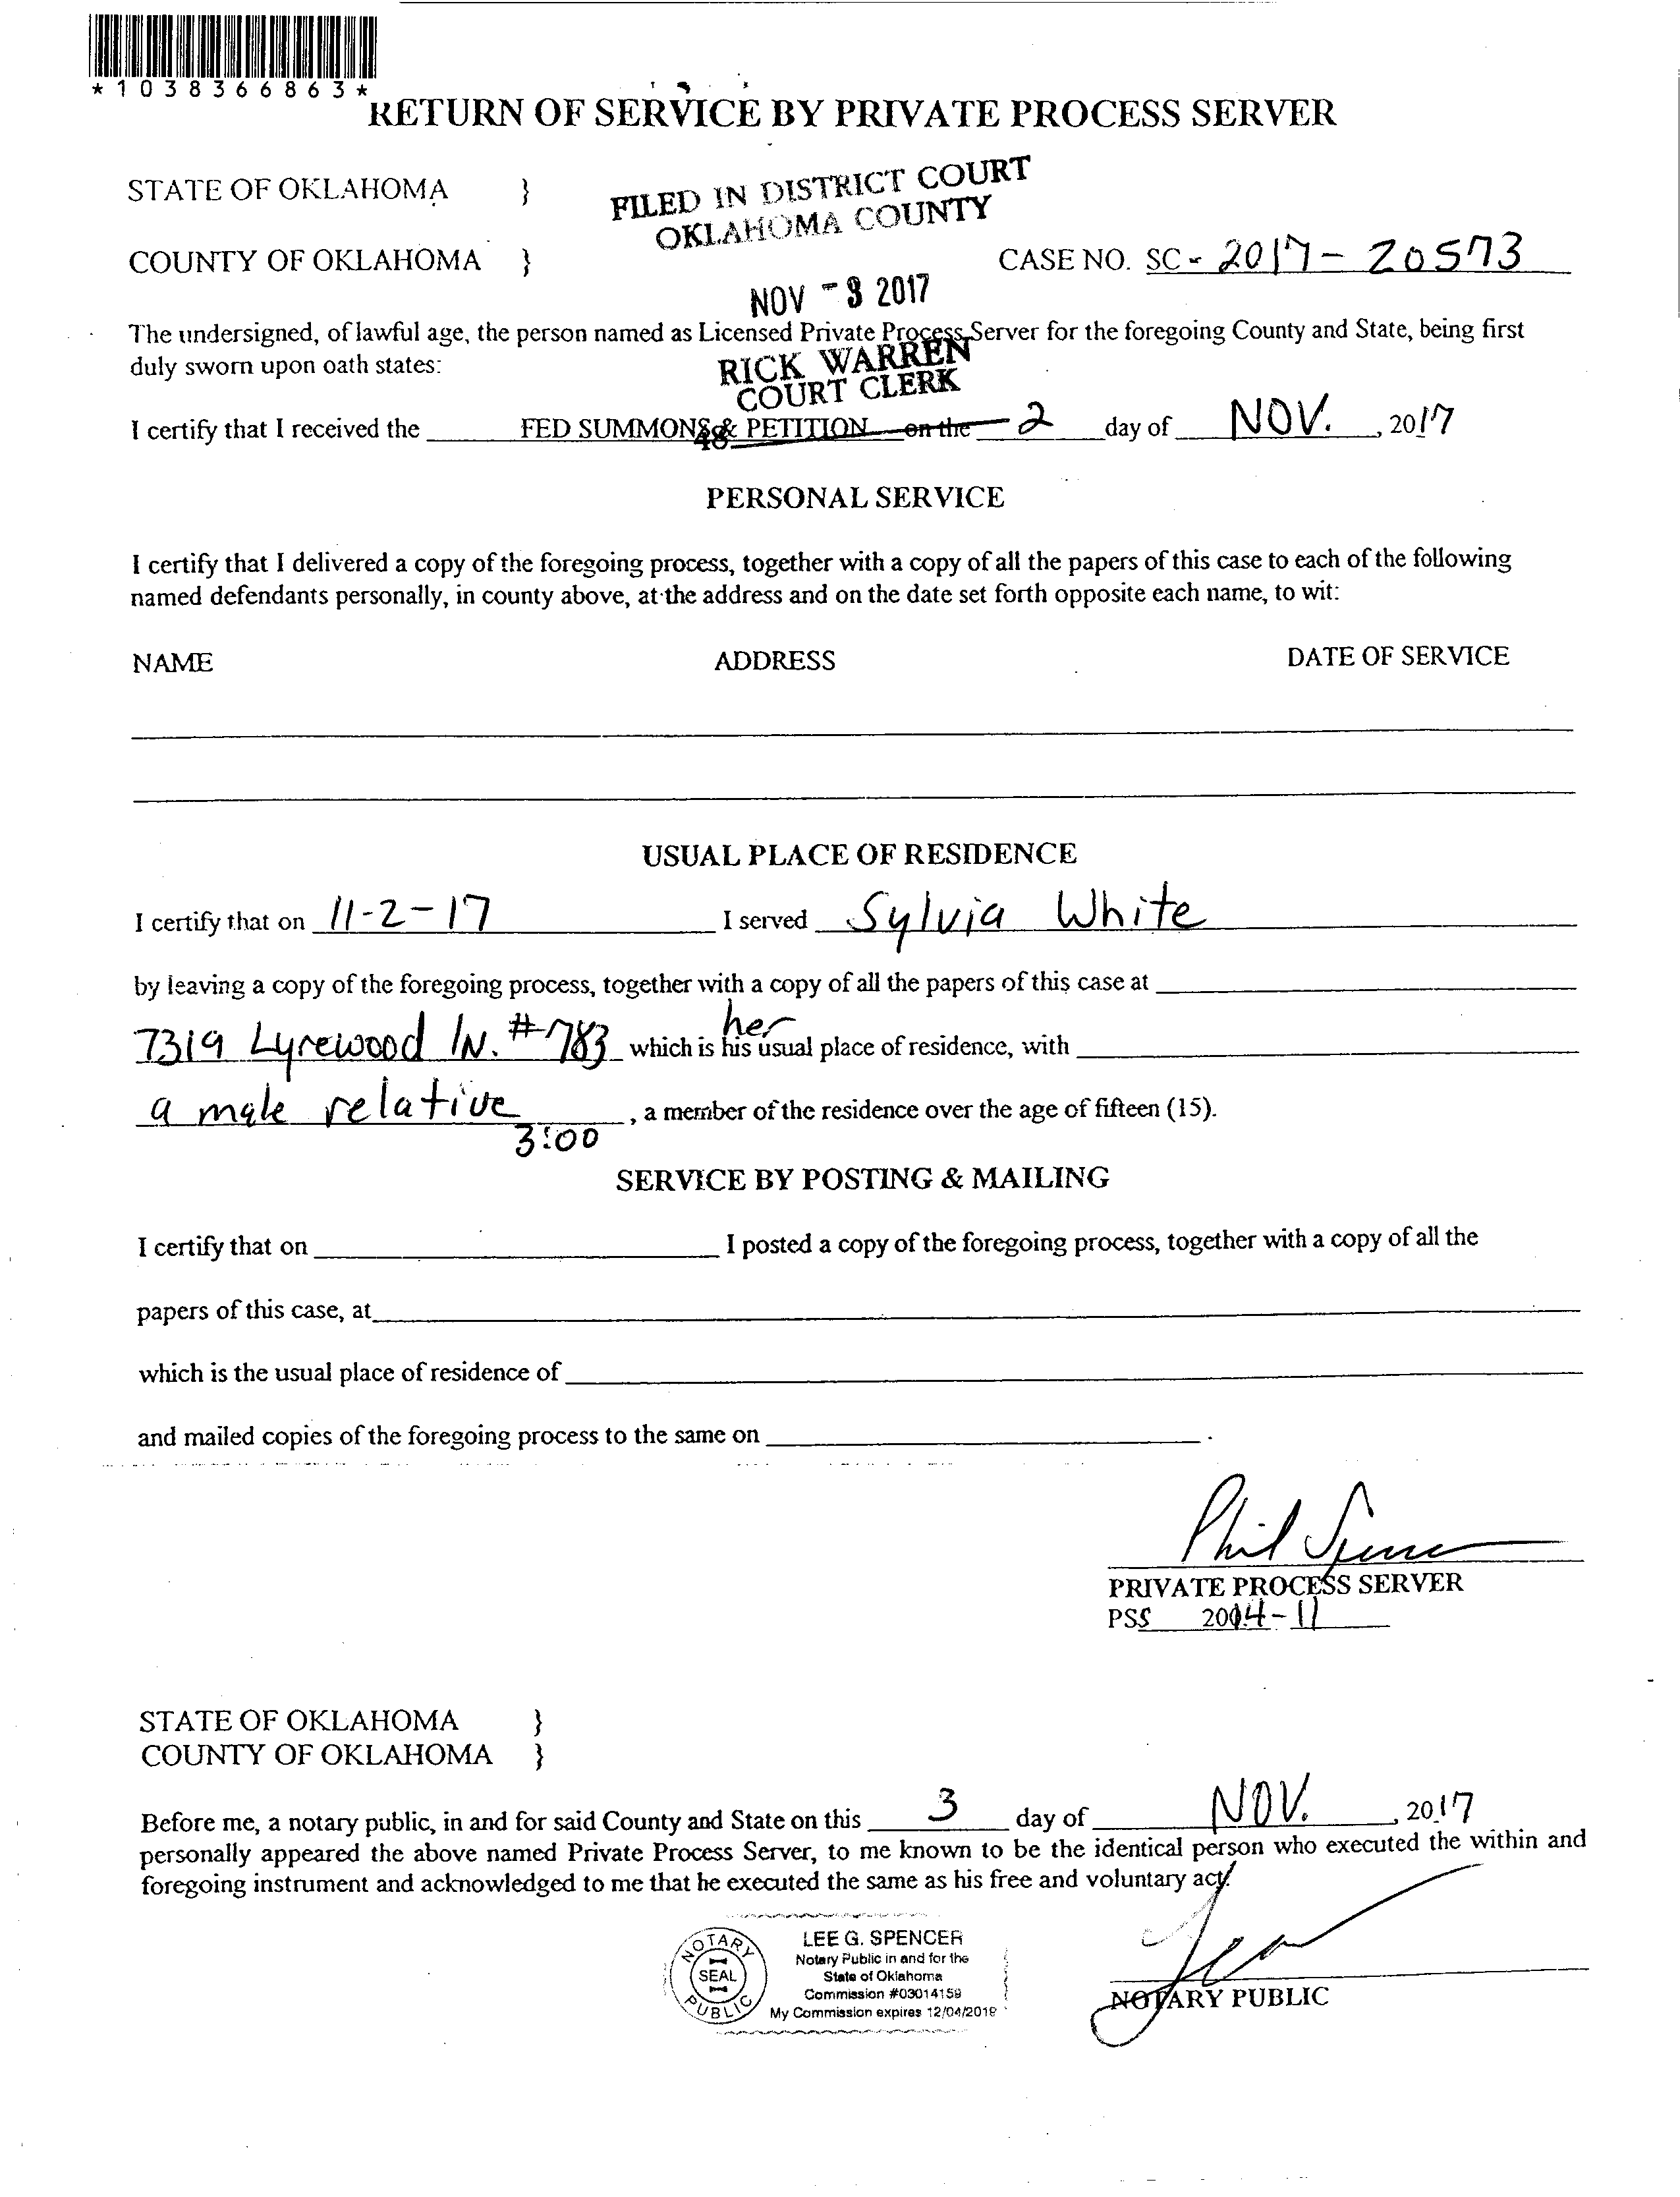 *1038366863*
RETURN OF SERVICE BY PRIVATE PROCESS SERVER
STATE OF OKLAHOMA }
FILED IN DISTRICT COURT
OKLAHOMA COUNTY
COUNTY OF OKLAHOMA }
CASE NO. SC - 2017 - 20573
NOV - 3 2017
The undersigned, of lawful age, the person named as Licensed Private Process Server for the foregoing County and State, being first
duly sworn upon oath states:
RICK WARREN
COURT CLERK
I certify that I received the FED SUMMONS & PETITION on the 2 day of NOV. , 2017
48
PERSONAL SERVICE
I certify that I delivered a copy of the foregoing process, together with a copy of all the papers of this case to each of the following
named defendants personally, in county above, at the address and on the date set forth opposite each name, to wit:
NAME ADDRESS DATE OF SERVICE
USUAL PLACE OF RESIDENCE
I certify that on 11-2-17 I served Sylvia White
by leaving a copy of the foregoing process, together with a copy of all the papers of this case at
her
7319 Lyrewood ln. #783 which is his usual place of residence, with
a male relative , a member of the residence over the age of fifteen (15).
3:00
SERVICE BY POSTING & MAILING
I certify that on I posted a copy of the foregoing process, together with a copy of all the
papers of this case, at
which is the usual place of residence of
and mailed copies of the foregoing process to the same on .
Phil Spencer
PRIVATE PROCESS SERVER
PSS 2014-11
STATE OF OKLAHOMA }
COUNTY OF OKLAHOMA }
Before me, a notary public, in and for said County and State on this 3 day of NOV. , 2017
personally appeared the above named Private Process Server, to me known to be the identical person who executed the within and
foregoing instrument and acknowledged to me that he executed the same as his free and voluntary act.
NOTARY
SEAL
PUBLIC
LEE G. SPENCER
Notary Public in and for the
State of Oklahoma
Commission #03014159
My Commission expires 12/04/2018
NOTARY PUBLIC